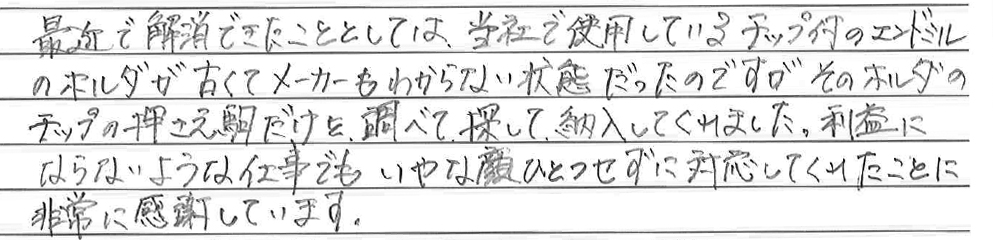 最近で解消できたこととしては、当社で使用しているチップ付のエンドミル
のホルダが古くてメーカーもわからない状態だったのですが そのホルダの
チップの押さえ駒だけを、調べて、探して、納入してくれました。利益に
ならないような仕事でも いやな顔ひとつせずに対応してくれたことに
非常に感謝しています。